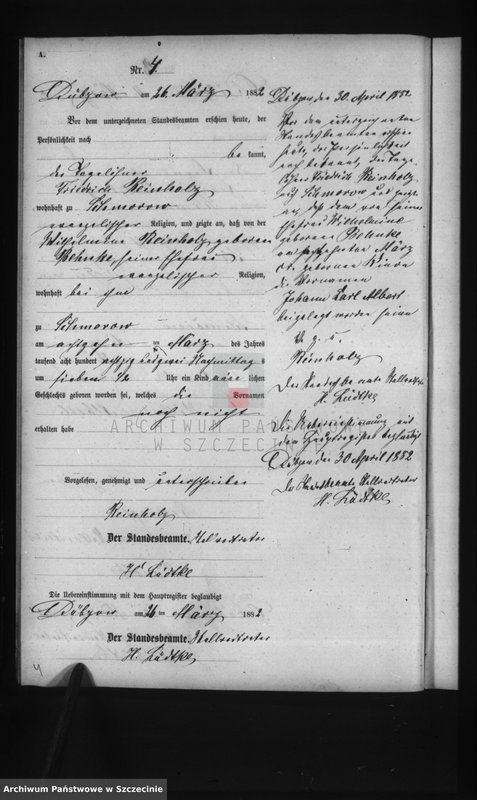 A.
Nr. 4.
Dübzow am 26. März 1882
Vor dem unterzeichneten Standesbeamten erschien heute, der
Persönlichkeit nach
bekannt,
der Tagelöhner
Friedrich Reinholz
wohnhaft zu Schmorow
evangelischer Religion, und zeigte an, daß von der
Wilhelmine Reinholz geborene
Behnke, seiner Ehefrau
evangelischer Religion,
wohnhaft bei ihm
zu Schmorow
am achtzehnten März des Jahres
tausend acht hundert achtzig und zwei Nachmittags
um sieben 1/2 Uhr ein Kind männlichen
Geschlechts geboren worden sei, welches die Vornamen
noch nicht
erhalten habe
Vorgelesen, genehmigt und unterschrieben
Reinholz
Der Standesbeamte. Stellvertreter
H. Lüdtke
Die Uebereinstimmung mit dem Hauptregister beglaubigt
Dübzow am 26 ten März 1882
Der Standesbeamte. Stellvertreter
H. Lüdtke
Dübzow den 30. April 1882
Vor dem unterzeichneten
Standesbeamten erschien
heute, der Persönlichkeit
nach bekannt, der Tage-
löhner Friedrich Reinholz
aus Schmorow und zeigte
an, daß dem von seiner
Ehefrau Wilhelmine
geborene Behnke
am achtzehnten März
geborenen Kinde
die Vornamen
Johann Carl Albert
beigelegt worden seien
V. g. u.
Reinholz
Der Standesbeamte Stellvertreter
H. Lüdtke
Die Uebereinstimmung mit
dem Hauptregister beglaubigt
Dübzow den 30 April 1882
Der Standesbeamte Stellvertreter
H. Lüdtke
ARCHIWUM PAŃSTWOWE
W SZCZECINIE
4
Archiwum Państwowe w Szczecinie